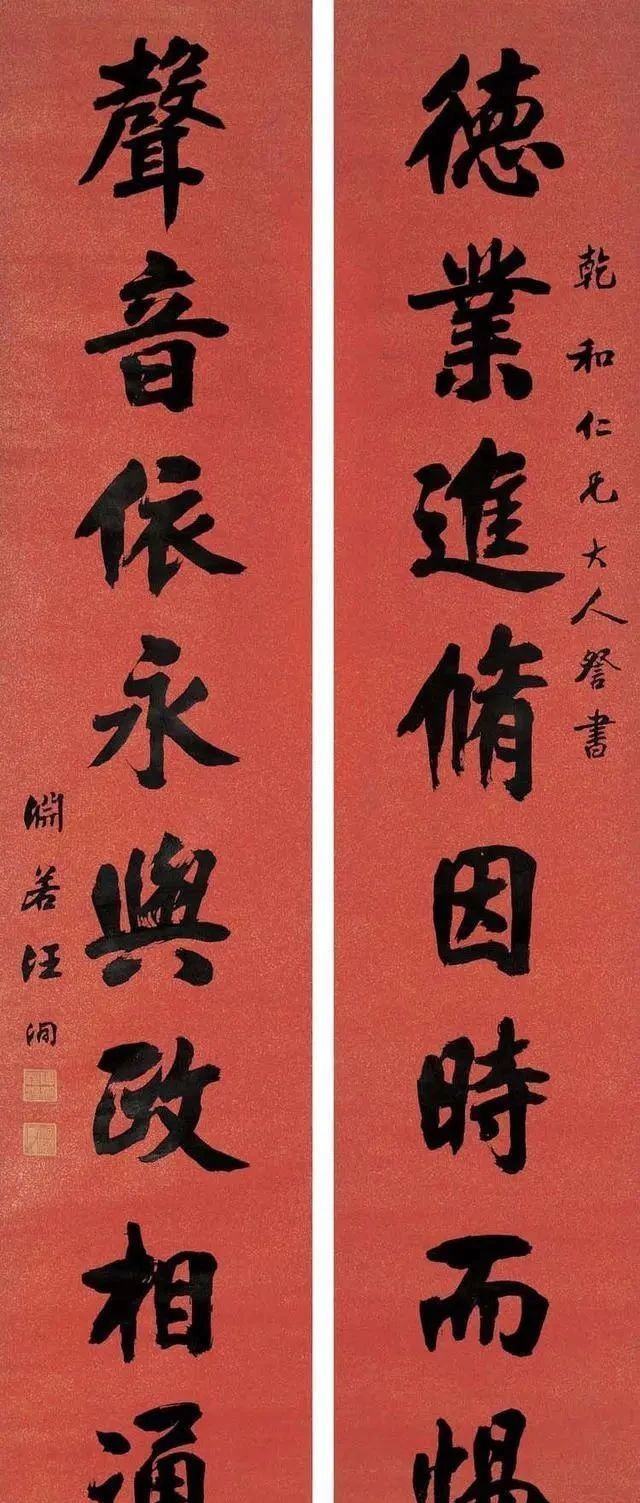 乾和仁兄大人詧書
德業進脩因時而惕
聲音依永與政相通
淵若汪洵